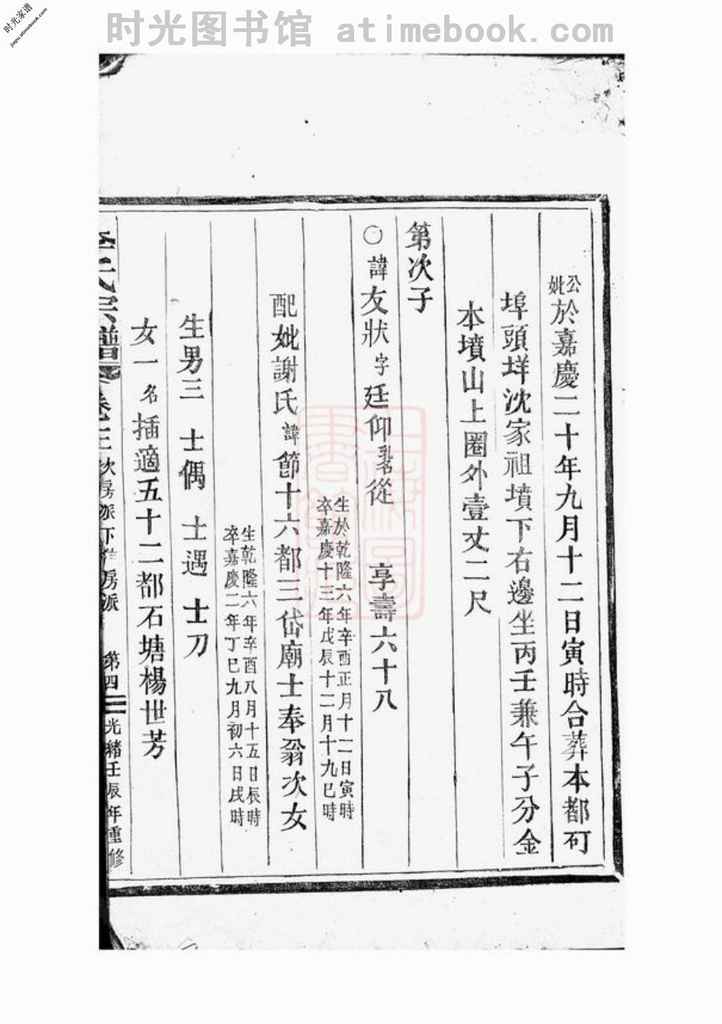 时光图书馆 atimebook.com
时光家谱
jiapu.atimebook.com
公妣於嘉慶二十年九月十二日寅時合葬本都砢
埠頭垟沈家祖墳下右邊坐丙壬兼午子分金
本墳山上圈外壹丈二尺
第次子
○諱友狀字廷仰乳名從 享壽六十八
生於乾隆六年辛酉正月十二日寅時
卒嘉慶十三年戊辰十二月十九巳時
配妣謝氏諱節十六都三岱廟士奉翁次女
生乾隆六年辛酉八月十五日辰時
卒嘉慶二年丁巳九月初六日戌時
生男三 士偶 士遇 士刀
女一名插適五十二都石塘楊世芳
氏宗譜 卷之 次房派下 房派 第四 光緒壬辰年重修